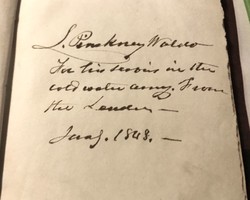 L. Pinckney Waldo
For his services in the
cold water army. From
the Leader —
Jany. 1848. —